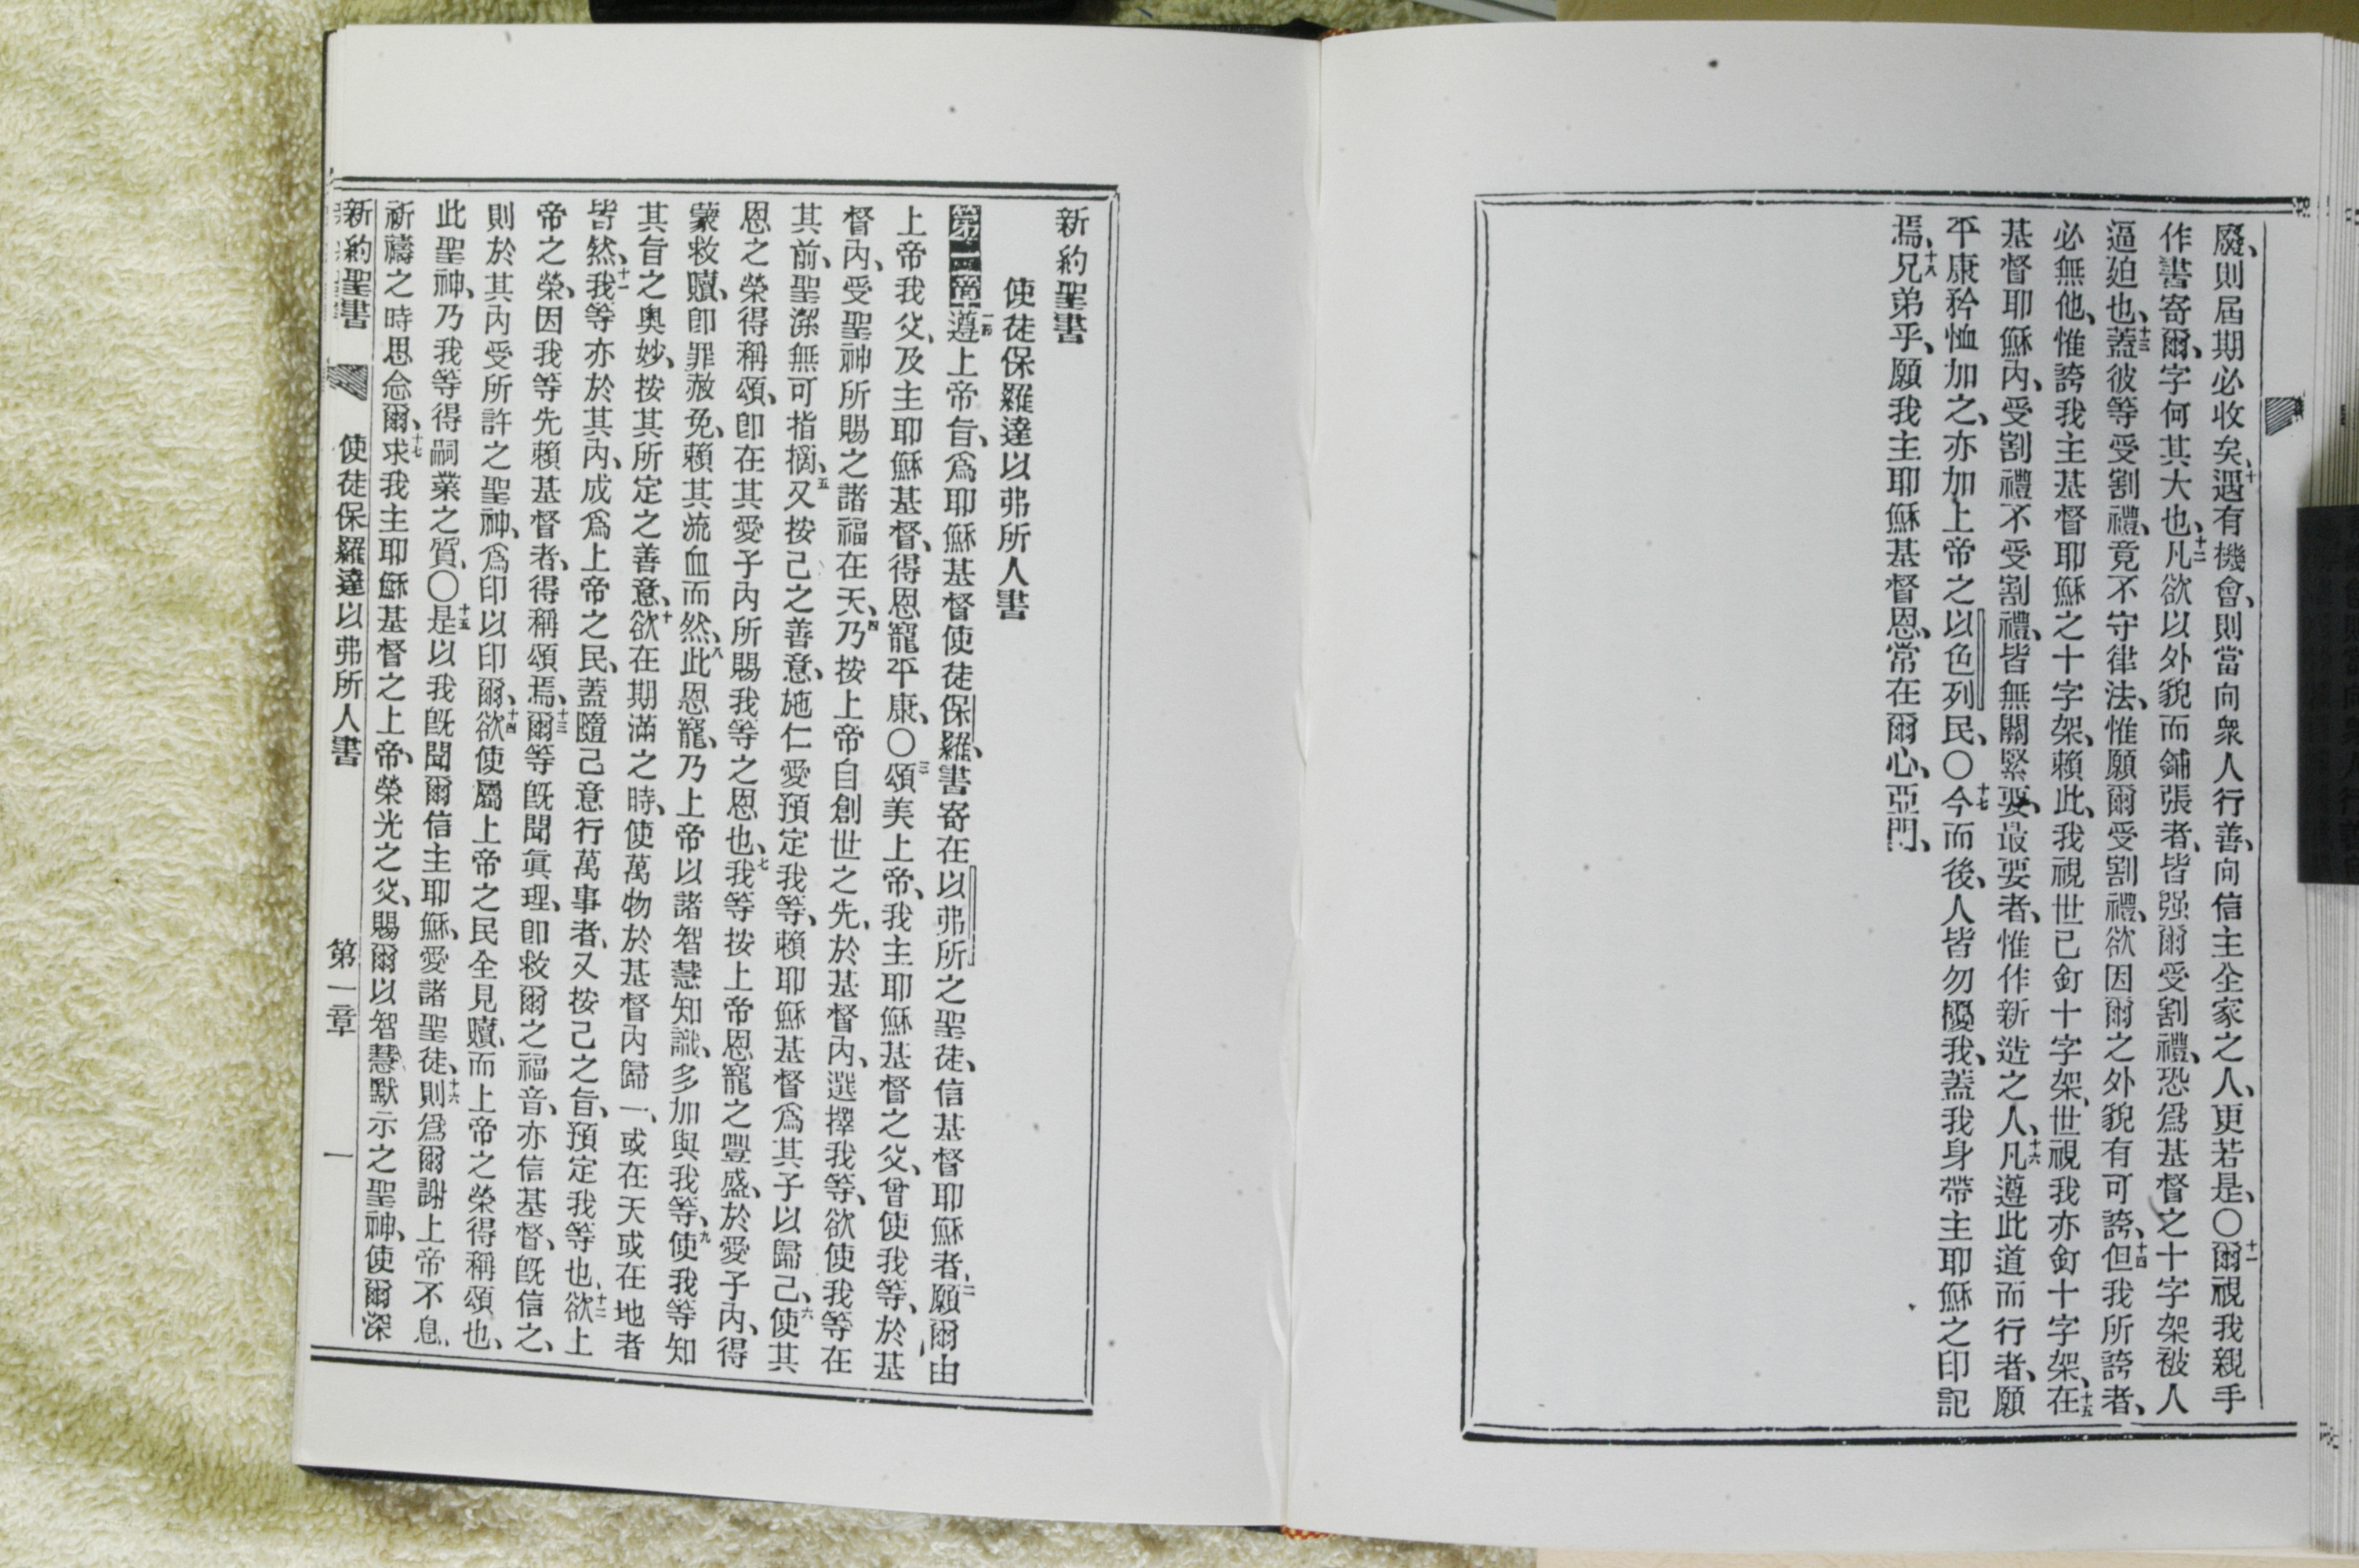 廢、則屆期必收矣、十遇有機會、則當向衆人行善、向信主全家之人、更若是、〇十一爾視我親手
作書寄爾、字何其大也、十二凡欲以外貌而鋪張者、皆强爾受割禮、恐爲基督之十字架被人
逼廹也、十三蓋彼等受割禮、竟不守律法、惟願爾受割禮、欲因爾之外貌有可誇、十四但我所誇者、
必無他、惟誇我主基督耶穌之十字架、賴此、我視世已釘十字架、世視我亦釘十字架、十五在
基督耶穌內、受割禮不受割禮、皆無關緊要、最要者、惟作新造之人、十六凡遵此道而行者、願
平康矜恤加之、亦加上帝之以色列民、〇十七今而後、人皆勿擾我、蓋我身帶主耶穌之印記
焉、十八兄弟乎、願我主耶穌基督恩、常在爾心、亞門、
新約聖書
使徒保羅達以弗所人書
第一章一節遵上帝旨、爲耶穌基督使徒保羅、書寄在以弗所之聖徒、信基督耶穌者、二願爾由
上帝我父、及主耶穌基督、得恩寵平康、〇三頌美上帝、我主耶穌基督之父、曾使我等、於基
督內、受聖神所賜之諸福在天、四乃按上帝自創世之先、於基督內、選擇我等、欲使我等在
其前、聖潔無可指摘、五又按己之善意、施仁愛預定我等、賴耶穌基督爲其子以歸己、六使其
恩之榮得稱頌、卽在其愛子內所賜我等之恩也、七我等按上帝恩寵之豐盛、於愛子內、得
蒙救贖、卽罪赦免、賴其流血而然、八此恩寵、乃上帝以諸智慧知識、多加與我等、九使我等知
其旨之奥妙、按其所定之善意、十欲在期滿之時、使萬物於基督內歸一、或在天或在地者
皆然、十一我等亦於其內、成爲上帝之民、蓋隨己意行萬事者、又按己之旨、預定我等也、十二欲上
帝之榮、因我等先賴基督者、得稱頌焉、十三爾等旣聞眞理、卽救爾之福音、亦信基督、旣信之、
則於其內受所許之聖神、爲印以印爾、十四欲使屬上帝之民全見贖、而上帝之榮得稱頌也、
此聖神、乃我等得嗣業之質、〇十五是以我旣聞爾信主耶穌、愛諸聖徒、十六則爲爾謝上帝不息、
祈禱之時思念爾、十七求我主耶穌基督之上帝、榮光之父、賜爾以智慧默示之聖神、使爾深
新約聖書 使徒保羅達以弗所人書 第一章 一